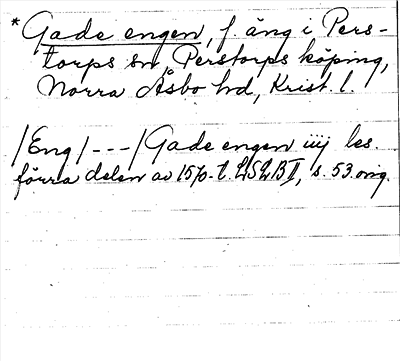 * Gade engen, f. äng i Pers-
torps sn, Perstorps köping,
Norra Åsbo hd, Krist. l.
/Eng/ --- / Gade engen iij les.
förra delen av 1570-t. LSLB II, s. 53. orig.